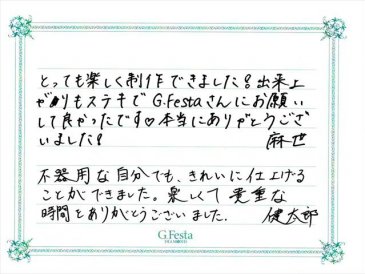 とっても楽しく制作できました！出来上
がりもステキで G.Festaさんにお願い
して良かったです♡本当にありがとうござ
いました！
麻世
不器用な自分でも、きれいに仕上げる
ことができました。楽しくて貴重な
時間をありがとうございました。 健太郎
G.Festa